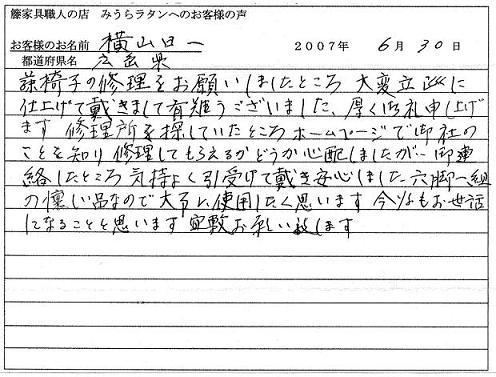 籐家具職人の店 みうらラタンへのお客様の声
お客様のお名前 横山日一 2007年 6月 30日
都道府県名 広島県
籐椅子の修理をお願いしましたところ 大変立派に
仕上げて戴きまして有難うございました、厚く御礼申し上げ
ます 修理所を探していたところホームページで御社の
ことを知り修理してもらえるかどうか心配しましたが、御連
絡したところ気持よく引受けて戴き安心しました 六脚一組
の懐しい品なので大事に使用したく思います 今後もお世話
になることと思います宜敷お願い致します